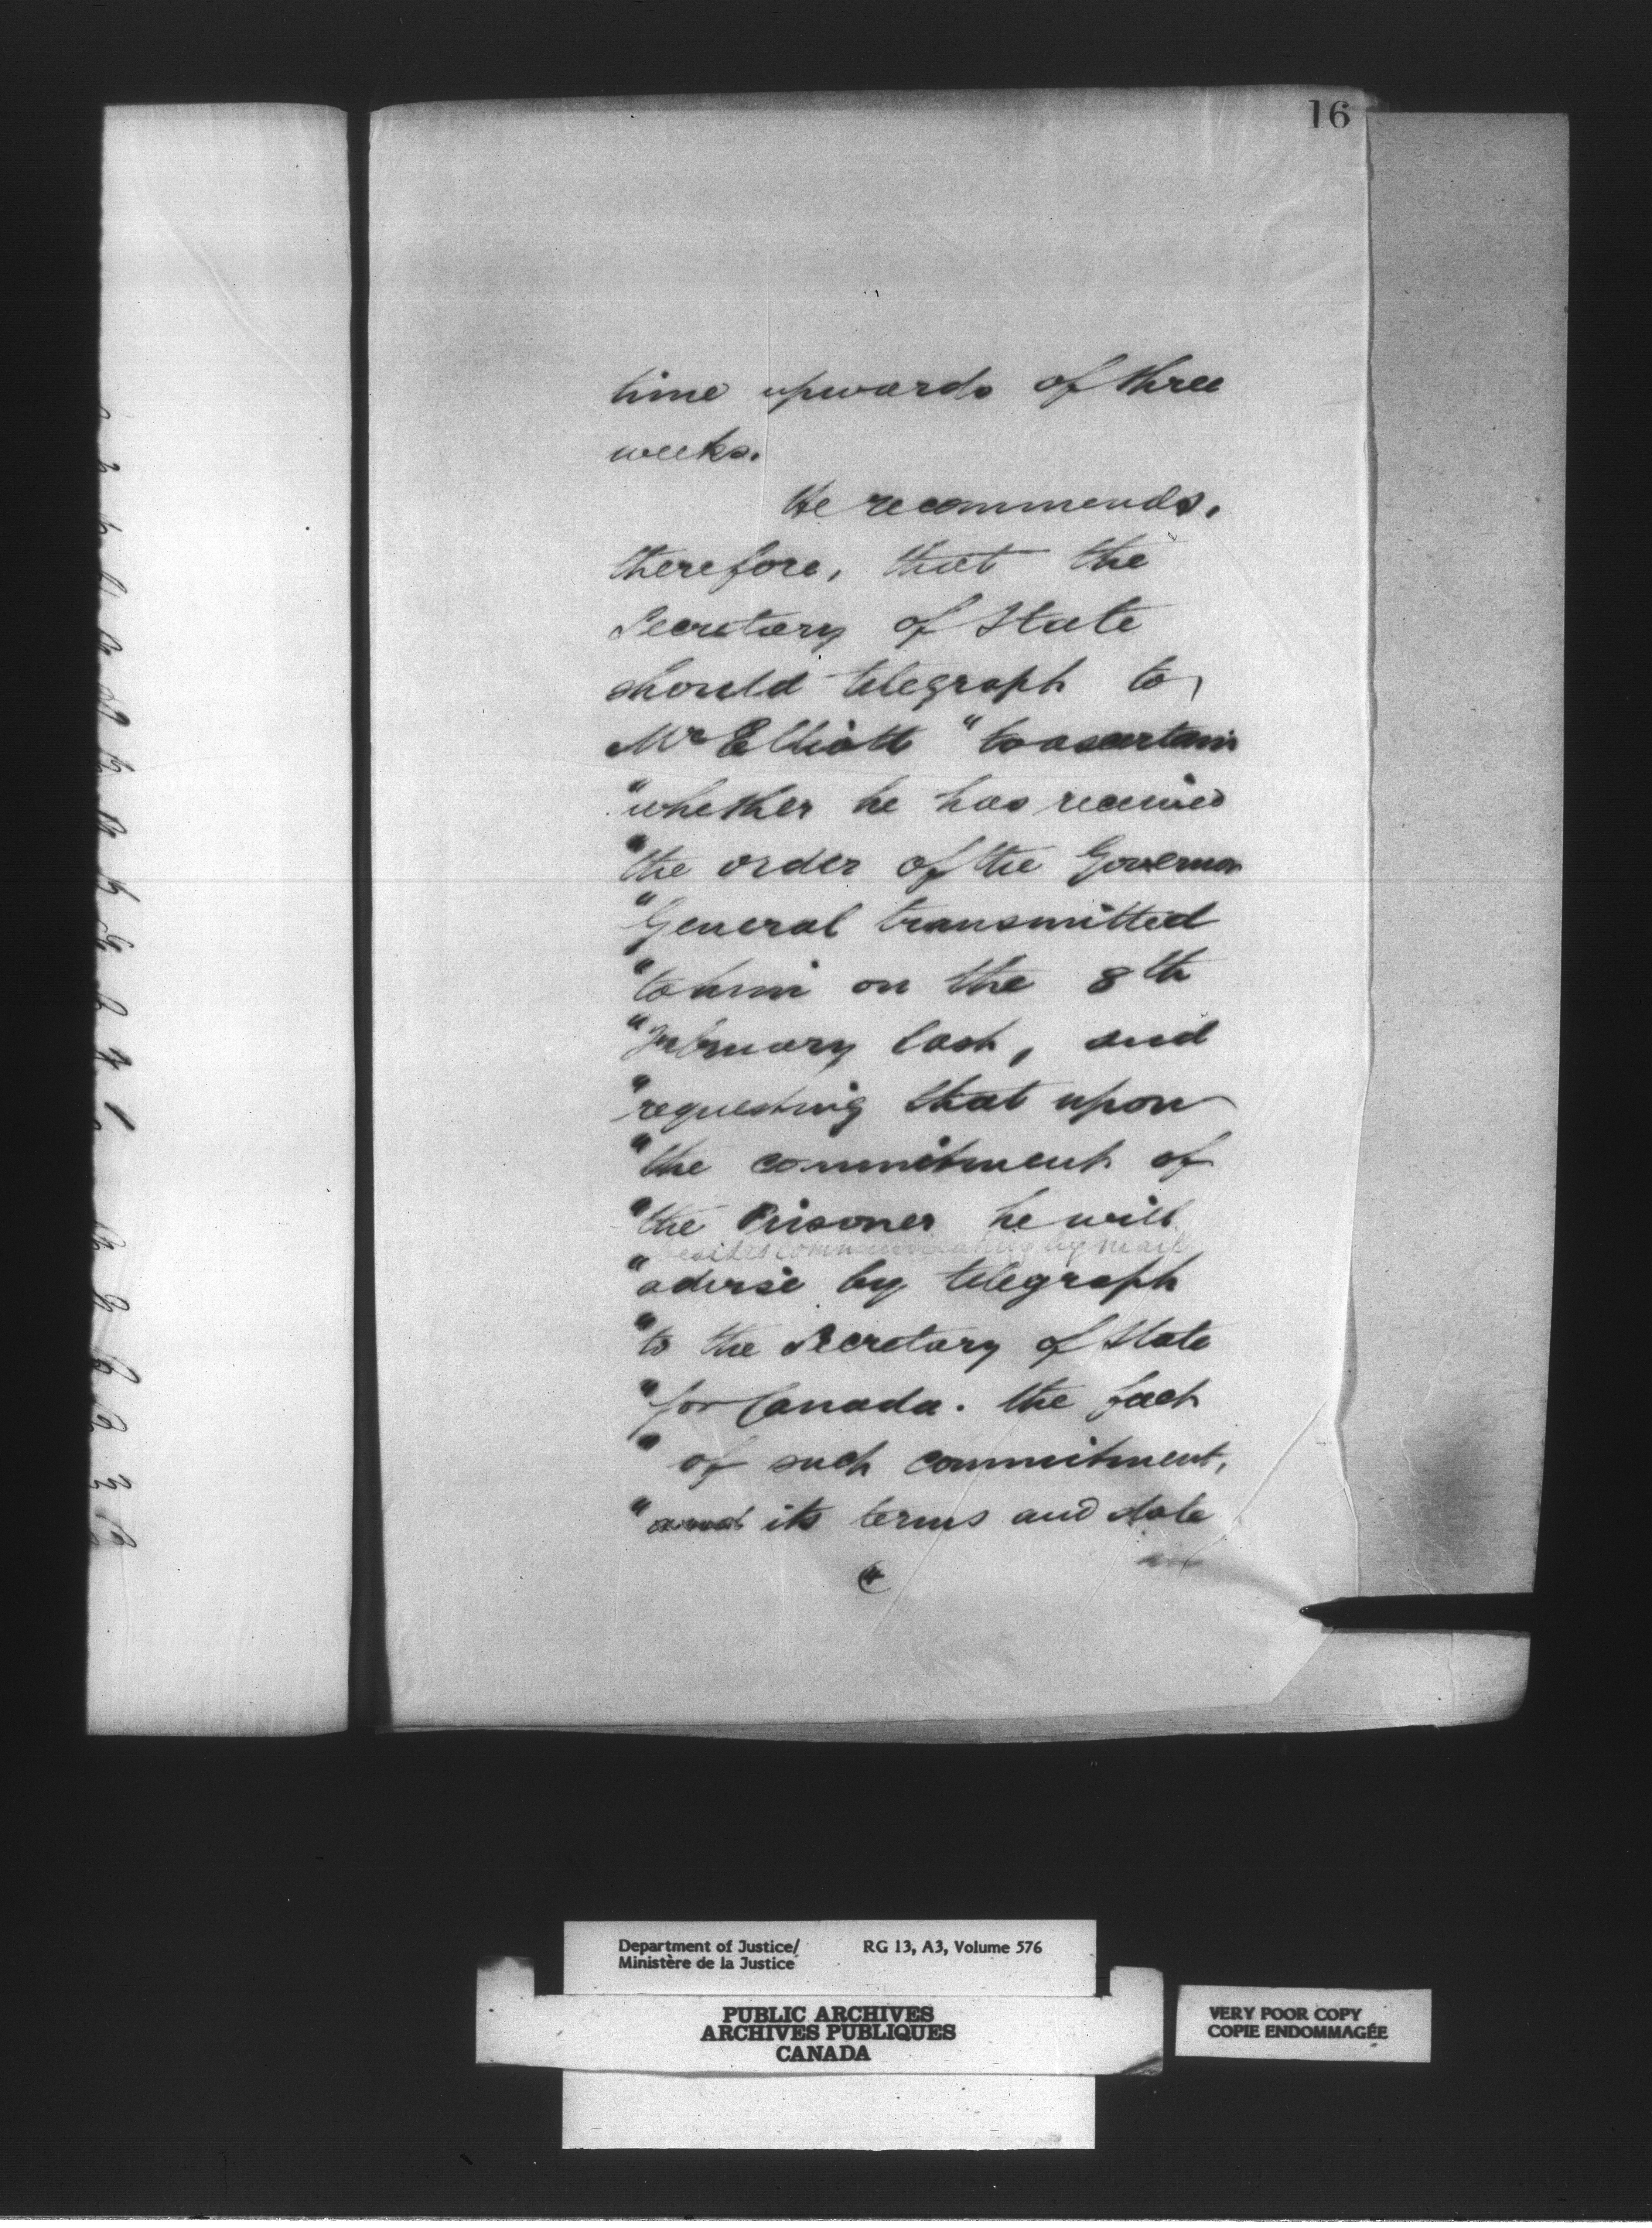 16
time upwards of three
weeks.
He recommends,
therefore, that the
Secretary of State
should telegraph to
Mr Elliott "to ascertain
"whether he has received
"the order of the Governor
"General transmitted
"to him on the 8th
"February last, and
"requesting that upon
"the commitment of
"the Prisoner he will
besides communicating by mail
"advise by telegraph
"to the Secretary of State
"for Canada. the fact
"of such commitment,
"and its terms and date
Department of Justice/
Ministère de la Justice
RG 13, A3, Volume 576
PUBLIC ARCHIVES
ARCHIVES PUBLIQUES
CANADA
VERY POOR COPY
COPIE ENDOMMAGÉE